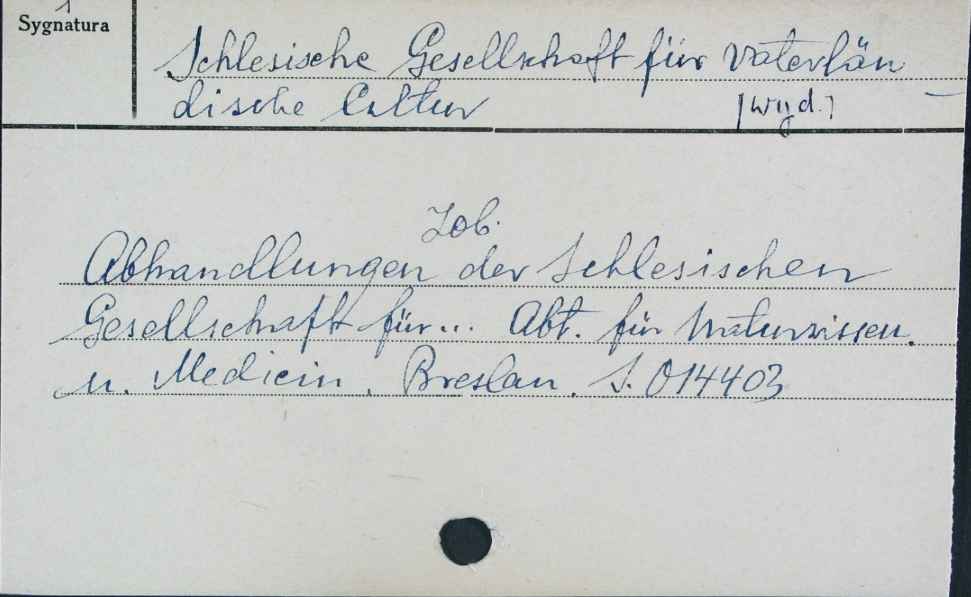 Sygnatura
Schlesische Gesellschaft für Vaterlän
dische Cultur [wyd.]
Zob.
Abhandlungen der Schlesischen
Gesellschaft für... Abt. für Naturwissen.
u. Medicin. Breslau. S. 014403